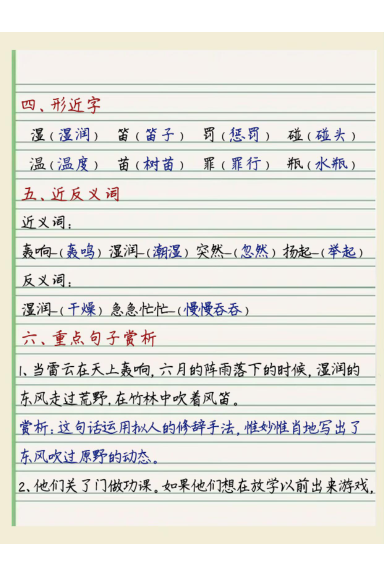 四、形近字
湿(湿润) 笛(笛子) 罚(惩罚) 碰(碰头)
温(温度) 苗(树苗) 罪(罪行) 瓶(水瓶)
五、近反义词
近义词:
轰响-(轰鸣) 湿润-(潮湿) 突然-(忽然) 扬起-(举起)
反义词:
湿润-(干燥) 急急忙忙-(慢慢吞吞)
六、重点句子赏析
1、当雷云在天上轰响,六月的阵雨落下的时候,湿润的
东风走过荒野,在竹林中吹着风笛。
赏析:这句话运用拟人的修辞手法,惟妙惟肖地写出了
东风吹过原野的动态。
2、他们关了门做功课。如果他们想在放学以前出来游戏,